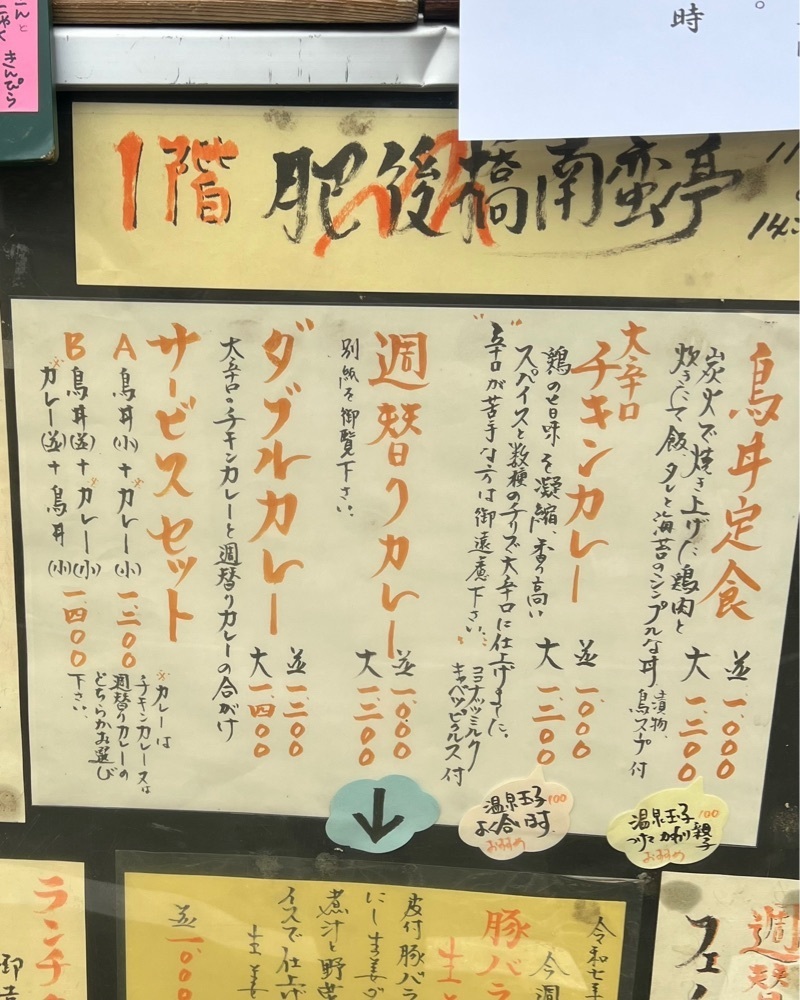 こんと
にゃく
きんぴら
時
。
1階 肥後橋南蛮亭
14:
鳥丼定食
並 一、000
大 一、三00
炭火で焼き上げた鶏肉と
炊きたて飯、タレと海苔のシンプルな丼
漬物、
鳥スープ 付
大辛口
チキンカレー
並 一、000
大 一、三00
鶏の旨味を凝縮、香り高い
スパイスと数種のチリで大辛口に仕上げました。
"辛口が苦手な方は御遠慮下さい。"
ココナッツミルク
キャベツピクルス 付
週替りカレー
並 一、000
大 一、三00
別紙を御覧下さい。
ダブルカレー
並 一、二00
大 一、四00
大辛口・チキンカレーと週替りカレーの合がけ
サービスセット
A 鳥丼(小)+カレー(小) 一、三00
B 鳥丼(並)+カレー(小) 一、四00
カレー(並)+鳥丼(小)
※カレーは
チキンカレー又は
週替りカレーの
どちらかお選び
下さい。
温泉玉子 100
つけて かわり親子
おすすめ
温泉玉子 100
よく合います
おすすめ
↓
週替
フェイ
令和七年
今週
豚バラ
生
皮付豚バラ
にし生姜が
煮汁と野菜
イスで仕上げ
生姜
並 一、00
ランチ
御